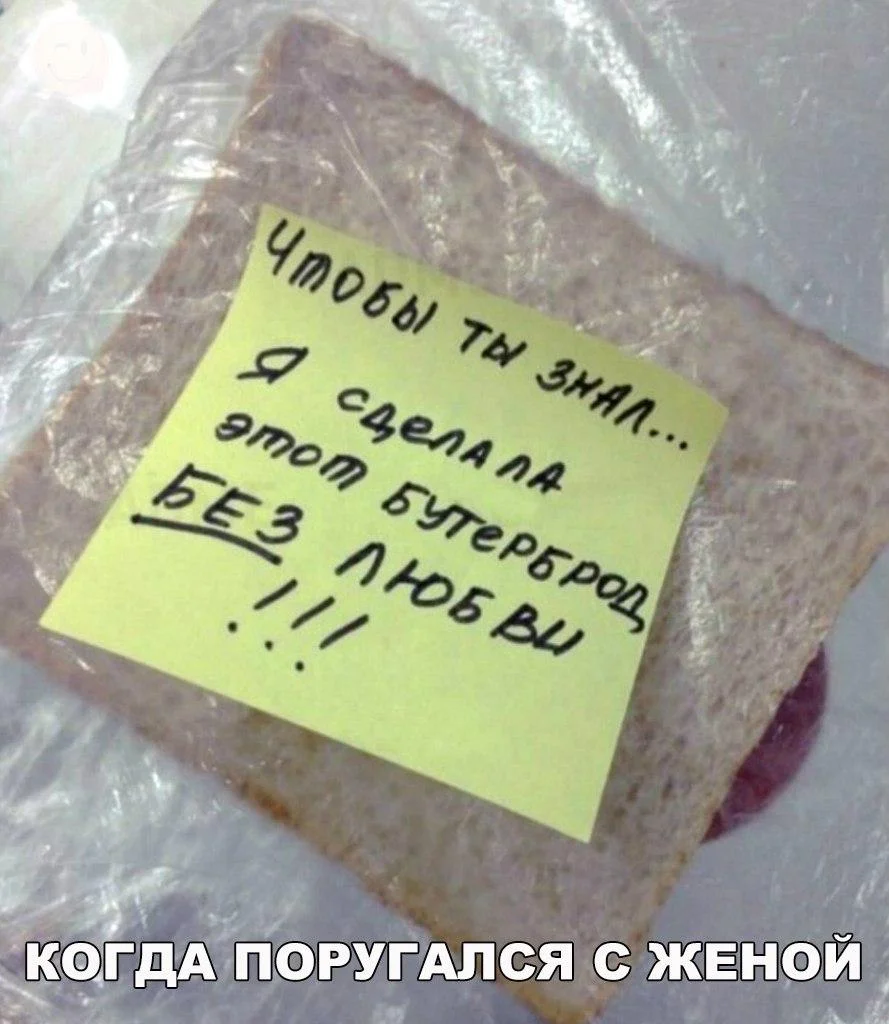 Чтобы ты знал...
Я сделала
этот бутерброд
БЕЗ любви
!!!
КОГДА ПОРУГАЛСЯ С ЖЕНОЙ